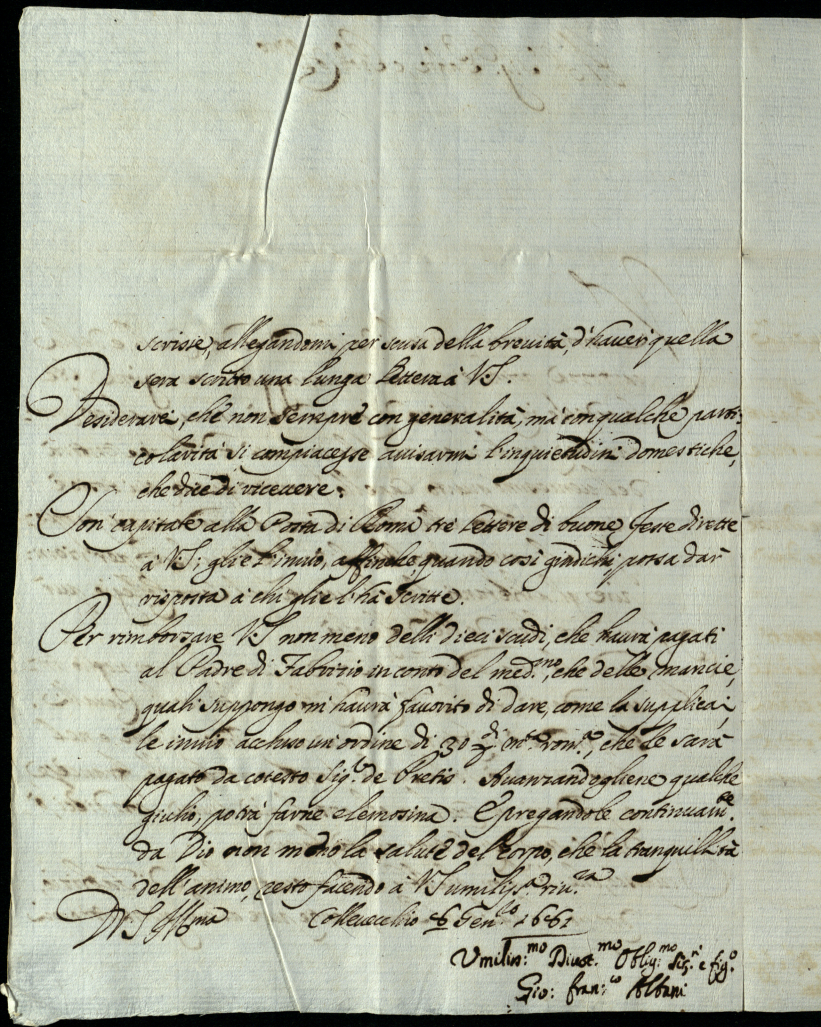 scrisse, allegandomi per scusa della brevità, d'haver quella
sera scritto una lunga lettera à VS.
Desiderarei, che non sempre con generalità, mà con qualche parti-
colarità si compiacesse avisarmi l'inquietudini domestiche,
che dice di ricevere.
Son capitate alla Posta di Roma trè lettere di buone feste dirette
à VS; gliel'invio, affinche, quando così giudichi, possa dar
risposta à chi gliel'hà scritte.
Per rimborsare VS non meno delli dieci scudi, che haurà pagati
al Padre di Fabrizio in conto del med.mo, che delle mancie,
quali suppongo m'haurà favorito di dare, come la supplicai,
le invio accluso un'ordine di 30 che le sarà
pagato da cotesto Sig.r de Pretis. Avanzandogliene qualche
giulio, potrà farne elemosina. E pregandole continuam.te
da Dio non meno la salute del corpo, che la tranquillità
dell'animo, resto facendo à VS umiliss.a riv.za
Di VS Ill.ma Collevecchio 6 Gen.ro 1661
Umilis.mo Divot.mo Oblig.mo e fig.o
Gio: Fran.co Albani